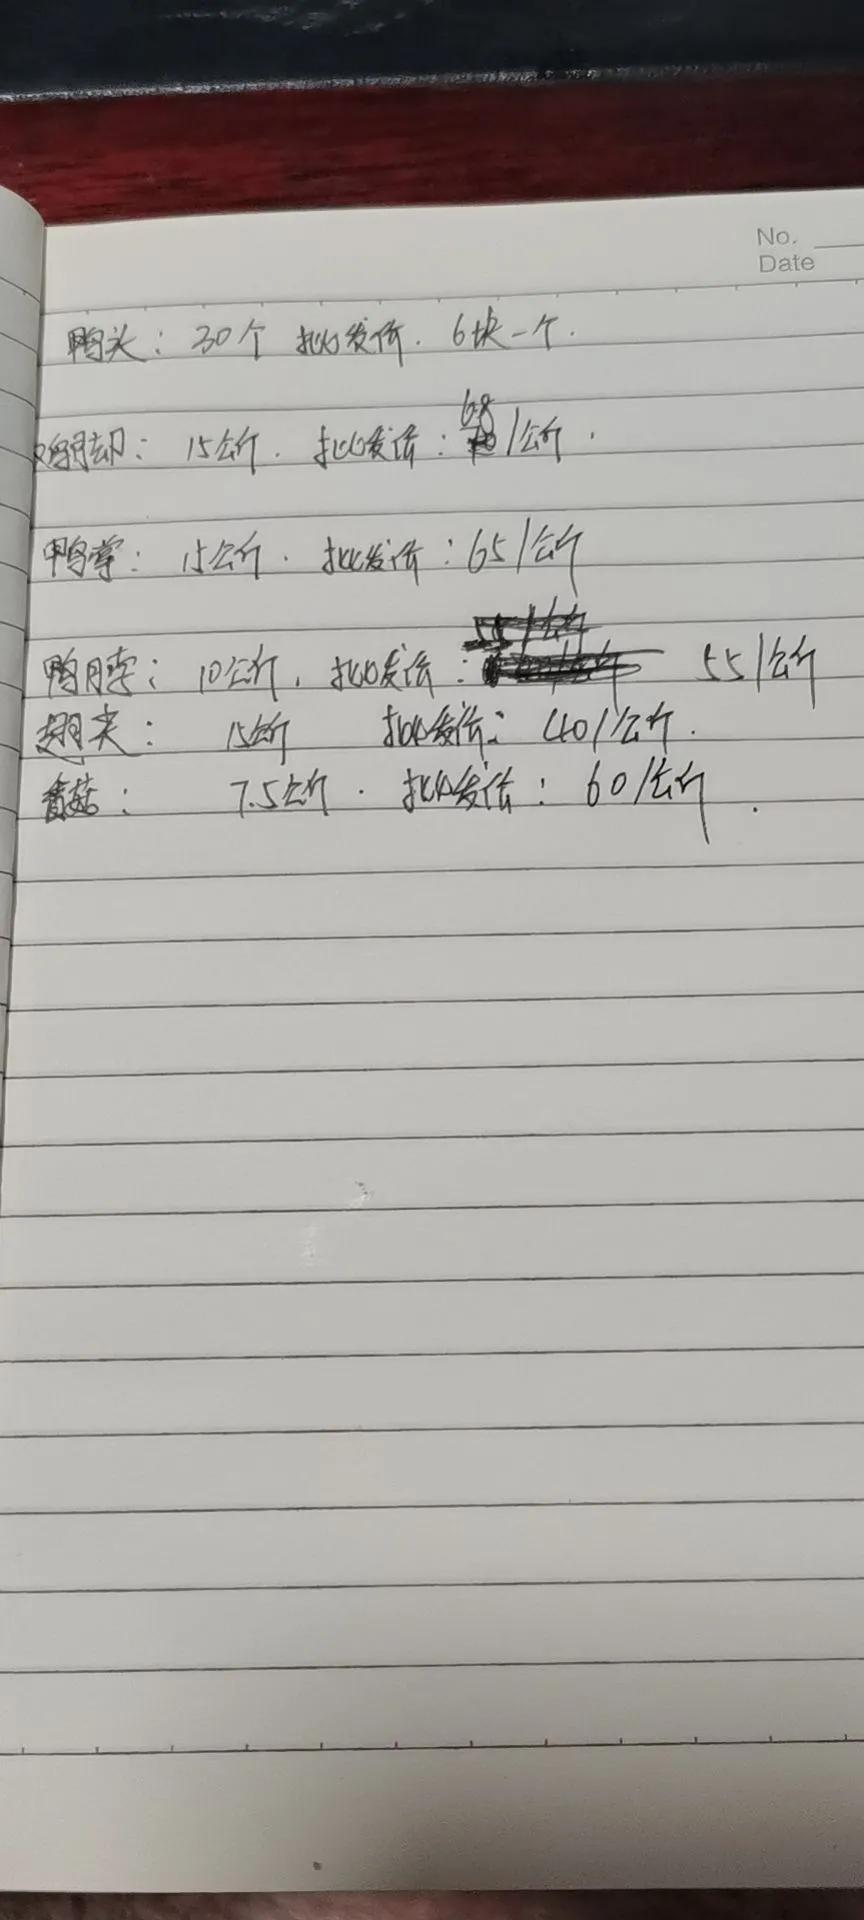 No.
Date
鸭头：30个 批发价．6块一个．
鸡脚：15公斤．批发价：68/公斤．
鸭掌：15公斤．批发价：65/公斤
鸭脖：10公斤．批发价：55/公斤
翅尖：15公斤 批发价：40/公斤．
香菇：7.5公斤．批发价：60/公斤．